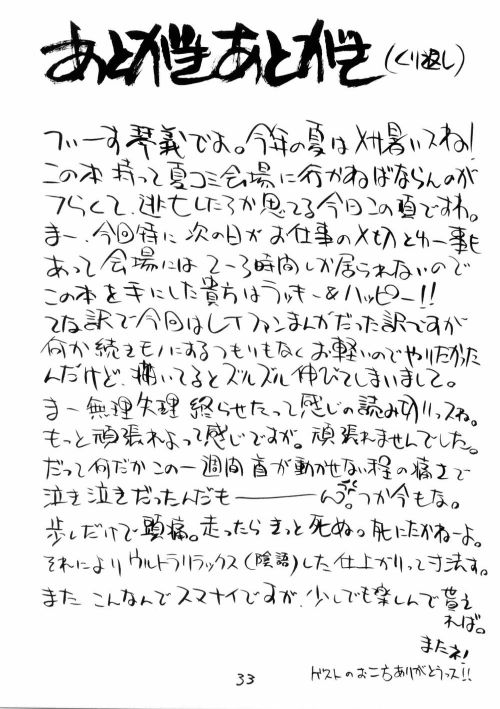 あとがきあとがき(くり返し)
ブいーす琴義でよ。今年の夏はメサ暑いスね!
この本持って夏コミ会場に行かねばならんのが
つらくて、逃亡したろか思てる今日この頃ですわ。
まー、今回特に次の日がお仕事の〆切とゆー事も
あって会場には2〜3時間しか居られないので
この本を手にした貴方はラッキー&ハッピー!!
てな訳で今回はLTファンまんがだった訳ですが
何か続きモノにするつもりもなくお軽いのでやりたかった
んだけど、描いてるとズルズル伸びてしまいまして。
まー無理矢理終らせたって感じの読み切りっスね。
もっと頑張れよって感じですが。頑張れませんでした。
だって何だかこの一週間首が動かせない程の痛さで
泣き泣きだったんだも――――ん。つか今もな。
歩くだけで頭痛。走ったらきっと死ぬ。死にたかねーよ。
それによりウルトラリラックス(陰語)した仕上がりって寸法す。
またこんなんでスマナイですが、少しでも楽しんで貰え
れば。
またネ!
ゲストのお二方ありがとうっス!!
33